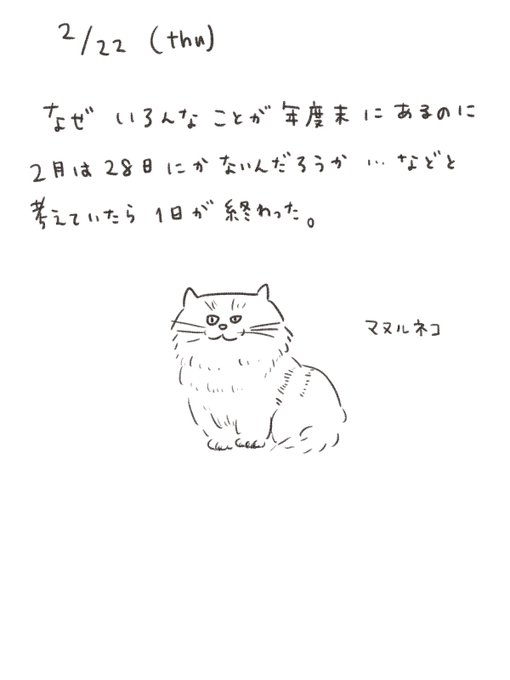 2/22 (thu)
なぜ いろんな ことが 年度末 に あるのに
2月は 28日 にか ないんだろうか … などと
考えていたら 1日が 終わった。
マヌルネコ